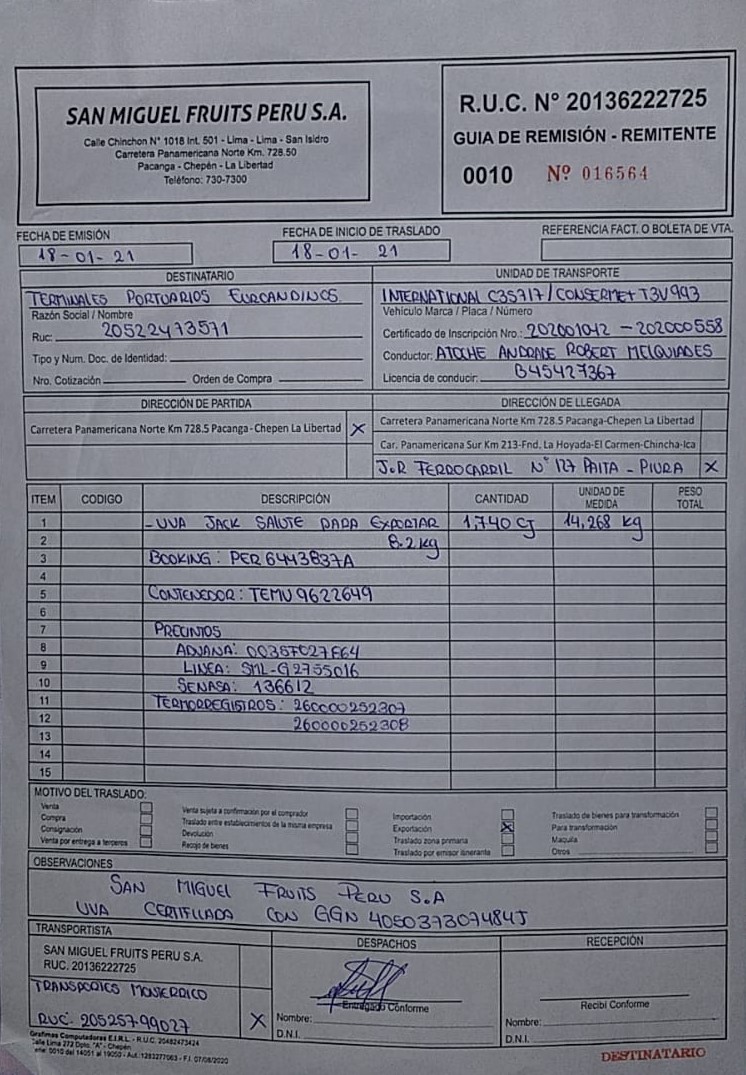 SAN MIGUEL FRUITS PERU S.A.
Calle Chinchon N° 1018 Int. 501 - Lima - Lima - San Isidro
Carretera Panamericana Norte Km. 728.50
Pacanga - Chepén - La Libertad
Teléfono: 730-7300
R.U.C. N° 20136222725
GUIA DE REMISIÓN - REMITENTE
0010 Nº 016564
FECHA DE EMISIÓN
18-01-21
FECHA DE INICIO DE TRASLADO
18-01-21
REFERENCIA FACT. O BOLETA DE VTA.
DESTINATARIO
TERMINALES PORTUARIOS EUROANDINOS
Razón Social / Nombre
Ruc: 20522473571
Tipo y Num. Doc. de Identidad:
Nro. Cotización Orden de Compra
UNIDAD DE TRANSPORTE
INTERNATIONAL C3S717/CONSERMET T3V993
Vehículo Marca / Placa / Número
Certificado de Inscripción Nro.: 202001042 - 202000558
Conductor: ATOCHE ANDRADE ROBERT MELQUIADES
Licencia de conducir: B45427367
DIRECCIÓN DE PARTIDA
Carretera Panamericana Norte Km 728.5 Pacanga-Chepen La Libertad X
DIRECCIÓN DE LLEGADA
Carretera Panamericana Norte Km 728.5 Pacanga-Chepen La Libertad
Car. Panamericana Sur Km 213-Fnd. La Hoyada-El Carmen-Chincha-Ica
J.R FERROCARRIL N° 127 PAITA - PIURA X
ITEM CODIGO DESCRIPCIÓN CANTIDAD UNIDAD DE MEDIDA PESO TOTAL
1 - UVA JACK SALUTE PARA EXPORTAR 1,740 CJ 14,268 kg
2 8.2 kg
3 BOOKING: PER6443837A
4
5 CONTENEDOR: TEMU 9622649
6
7 PRECINTOS
8 ADUANA: 00387027864
9 LINEA: SML-G2755016
10 SENASA: 136612
11 TERMORREGISTROS: 260000252307
12 260000252308
13
14
15
MOTIVO DEL TRASLADO:
Venta
Compra
Consignación
Venta por entrega a terceros
Venta sujeta a confirmación por el comprador
Traslado entre establecimientos de la misma empresa
Devolución
Recojo de bienes
Importación
Exportación X
Traslado zona primaria
Traslado por emisor itinerante
Traslado de bienes para transformación
Para transformación
Maquila
Otros
OBSERVACIONES
SAN MIGUEL FRUITS PERU S.A
UVA CERTIFICADA CON GGN 4050373074845
TRANSPORTISTA
SAN MIGUEL FRUITS PERU S.A.
RUC. 20136222725
TRANSPORTES MONTERRICO
RUC: 20525799027 X
DESPACHOS
Entregado Conforme
Nombre:
D.N.I.
RECEPCIÓN
Recibi Conforme
Nombre:
D.N.I.
Grafimas Computadoras E.I.R.L. - R.U.C. 20482473424
Calle Lima 272 Dpto. "A" - Chepén
0010 del 14051 al 19050 - Aut.:1283277063 - F.I. 07/08/2020
DESTINATARIO